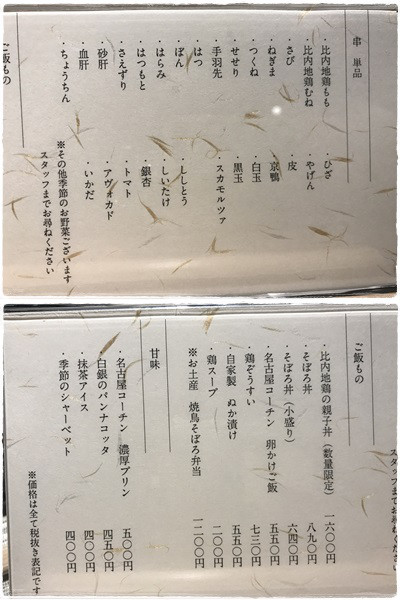 串 単品
・比内地鶏もも
・比内地鶏むね
・さび
・ねぎま
・つくね
・せせり
・手羽先
・はつ
・ぼん
・はらみ
・はつもと
・さえずり
・砂肝
・血肝
・ちょうちん
・ひざ
・やげん
・皮
・京鴨
・白玉
・黒玉
・スカモルツァ
・ししとう
・しいたけ
・銀杏
・トマト
・アヴォカド
・いかだ
※その他季節のお野菜ございます
スタッフまでお尋ねください
ご飯もの
スタッフまでお尋ねください
ご飯もの
・比内地鶏の親子丼(数量限定) 一六〇〇円
・そぼろ丼 八九〇円
・そぼろ丼(小盛り) 六四〇円
・名古屋コーチン 卵かけご飯 五五〇円
・鶏ぞうすい 七三〇円
・自家製 ぬか漬け 五五〇円
・鶏スープ 二〇〇円
※お土産 焼鳥そぼろ弁当 一二〇〇円
甘味
・名古屋コーチン 濃厚プリン 五〇〇円
・白銀のパンナコッタ 四五〇円
・抹茶アイス 四〇〇円
・季節のシャーベット 四〇〇円
※価格は全て税抜き表記です